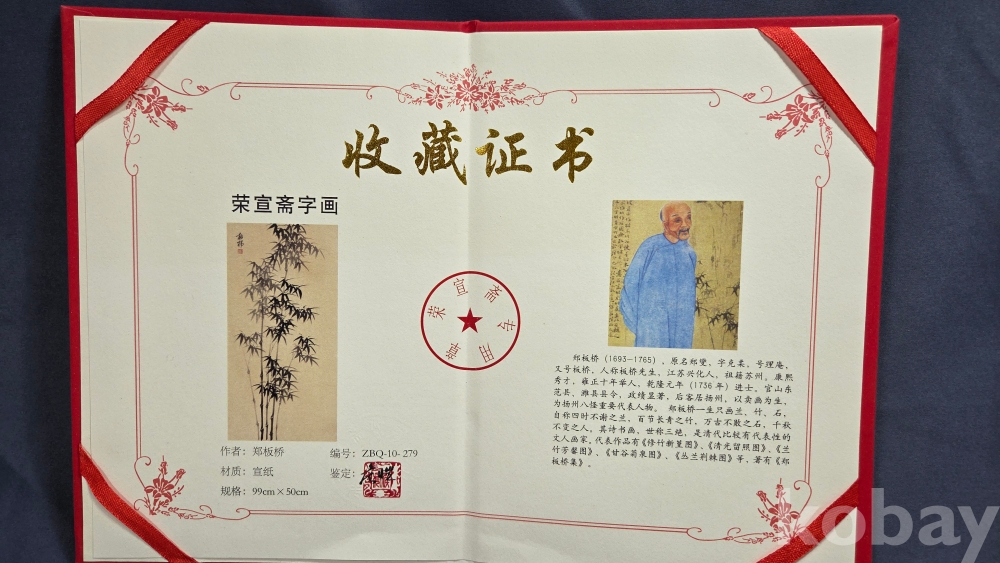 收藏证书
荣宣斋字画
作者：郑板桥
编号：ZBQ-10-279
材质：宣纸
鉴定：
规格：99cm×50cm
荣宣斋专用章
郑板桥（1693—1765），原名郑燮，字克柔，号理庵，
又号板桥，人称板桥先生，江苏兴化人，祖籍苏州。康熙
秀才，雍正十年举人，乾隆元年（1736年）进士。官山东
范县、潍县县令，政绩显著，后客居扬州，以卖画为生，
为扬州八怪重要代表人物。 郑板桥一生只画兰、竹、石，
自称四时不谢之兰，百节长青之竹，万古不败之石，千秋
不变之人。其诗书画，世称三绝，是清代比较有代表性的
文人画家，代表作品有《修竹新篁图》、《清光留照图》、《兰
竹芳馨图》、《甘谷菊泉图》、《丛兰荆棘图》等，著有《郑
板桥集》。
kobay